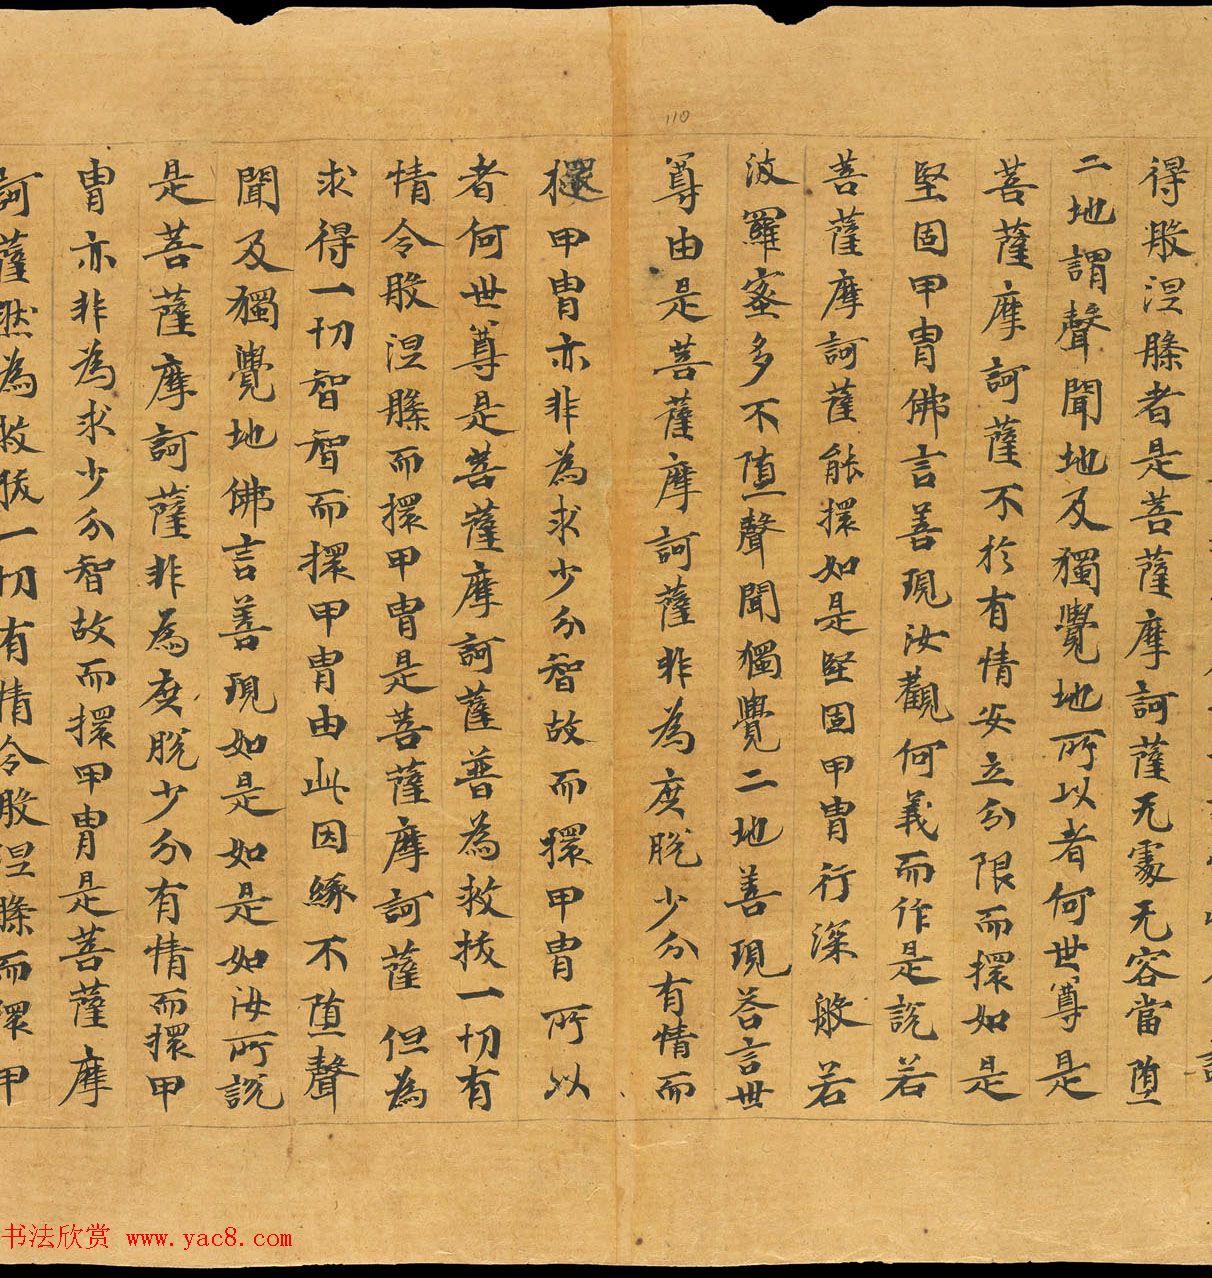 110
得般涅槃者是菩薩摩訶薩无處无容當堕
二地謂聲聞地及獨覺地所以者何世尊是
菩薩摩訶薩不於有情安立分限而擐如是
堅固甲胄佛言善現汝觀何義而作是說若
菩薩摩訶薩能擐如是堅固甲胄行深般若
波羅蜜多不堕聲聞獨覺二地善現荅言世
尊由是菩薩摩訶薩非為度脫少分有情而
擐甲胄亦非為求少分智故而擐甲胄所以
者何世尊是菩薩摩訶薩普為救拔一切有
情令般涅槃而擐甲胄是菩薩摩訶薩但為
求得一切智智而擐甲胄由此因緣不堕聲
聞及獨覺地佛言善現如是如是如汝所說
是菩薩摩訶薩非為度脫少分有情而擐甲
胄亦非為求少分智故而擐甲胄是菩薩摩
訶薩然為救拔一切有情令般涅槃而擐甲
书法欣赏 www.yac8.com